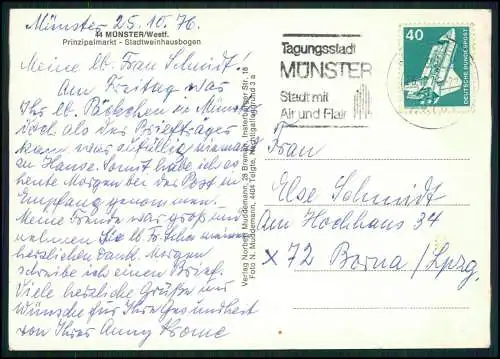 Münster 25.10.76.
44 MÜNSTER/Westf.
Prinzipalmarkt - Stadtweinhausbogen
Meine lb. Frau Schmidt!
Am Freitag war
Ihr lb. Päckchen in Münster
doch als der Briefträger
kam war zufällig niemand
zu Hause. Somit habe ich es
heute Morgen bei der Post in
Empfang genommen.
Meine Freude war groß und
nehmen Sie lb. Fr. Schm. meinen
herzlichen Dank. Morgen
schreibe ich einen Brief.
Viele herzliche Grüße und
Wünsche für Ihre Gesundheit
von Ihrer Anny
Verlag Norbert Muddemann, 28 Bremen, Insterburger Str. 18
Foto: N. Muddemann, 4404 Telgte,
Tagungsstadt
MÜNSTER
Stadt mit
Air und Flair
40
DEUTSCHE BUNDESPOST
Frau
Else Schmidt
Am Hochhaus 34
x 72 Borna / Lpzg.